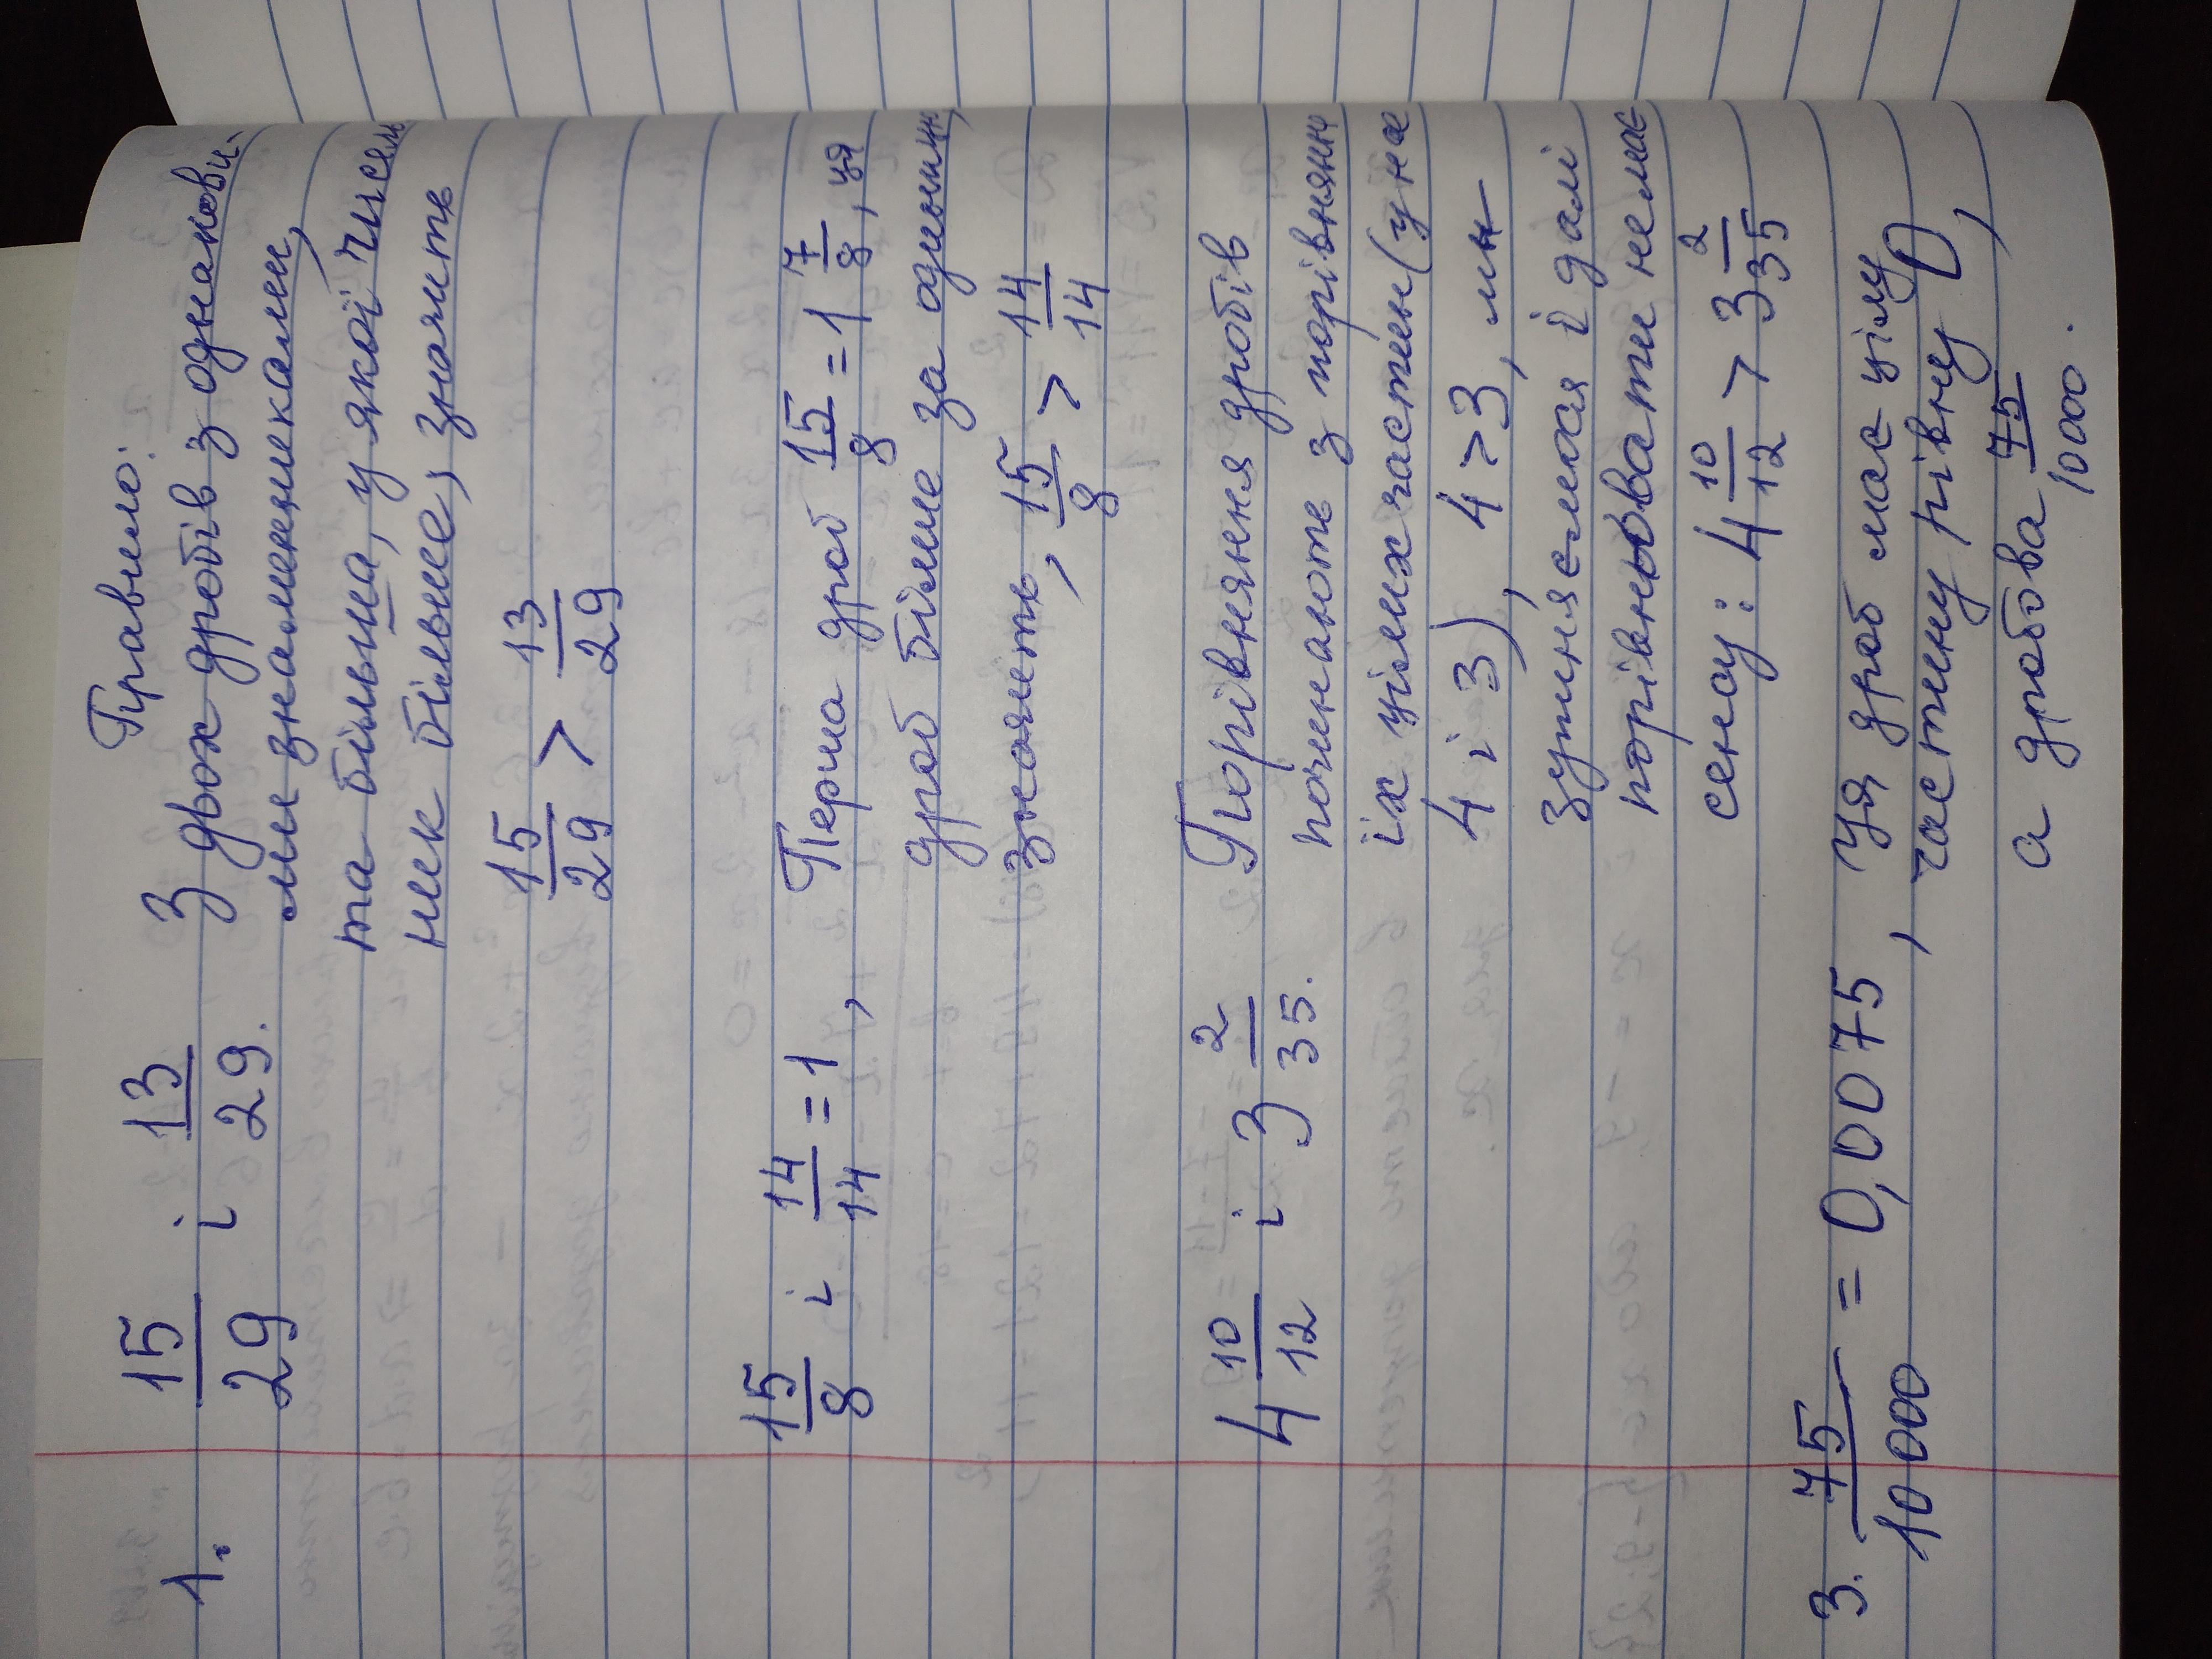 Правило:
1. 15/29 і 13/29. З двох дробів з однакови-
ми знаменниками,
та більша, у якої чисель
ник більше, значить
15/29 > 13/29
15/8 і 14/14 = 1, Перша дроб 15/8 = 1 7/8, ця
дроб більше за одиницю,
значить, 15/8 > 14/14
4 10/12 і 3 2/35. Порівняння дробів
починають з порівняння
їх цілих частин (у нас
4 і 3), 4 > 3, ми
зупиняємося і далі
порівнювати немає
сенсу: 4 10/12 > 3 2/35
3. 75/10000 = 0,0075, ця дроб має цілу
частину рівну 0,
а дробова 75/10000.